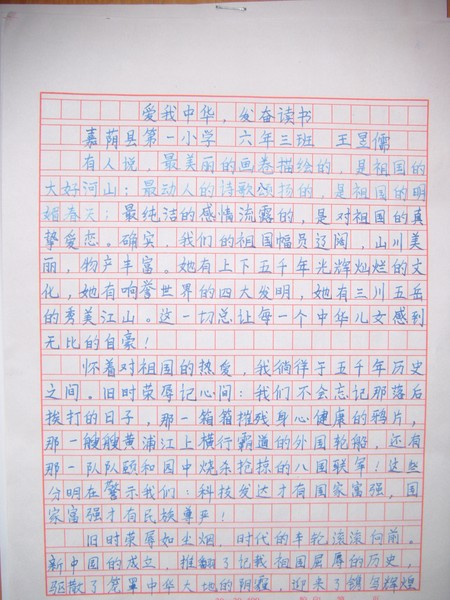 爱我中华，发奋读书
嘉荫县第一小学 六年三班 王昱儒
有人说，最美丽的画卷描绘的，是祖国的
大好河山；最动人的诗歌颂扬的，是祖国的明
媚春天；最纯洁的感情流露的，是对祖国的真
挚爱恋。确实，我们的祖国幅员辽阔，山川美
丽，物产丰富。她有上下五千年光辉灿烂的文
化，她有响誉世界的四大发明，她有三川五岳
的秀美江山。这一切总让每一个中华儿女感到
无比的自豪！
怀着对祖国的热爱，我徜徉于五千年历史
之间。旧时荣辱记心间：我们不会忘记那落后
挨打的日子，那一箱箱摧残身心健康的鸦片，
那一艘艘黄浦江上横行霸道的外国轮船，还有
那一队队颐和园中烧杀抢掠的八国联军！这些
分明在警示我们：科技发达才有国家富强，国
家富强才有民族尊严！
旧时荣辱如尘烟，时代的车轮滚滚向前。
新中国的成立，推翻了记载祖国屈辱的历史，
驱散了笼罩中华大地的阴霾，迎来了辉煌